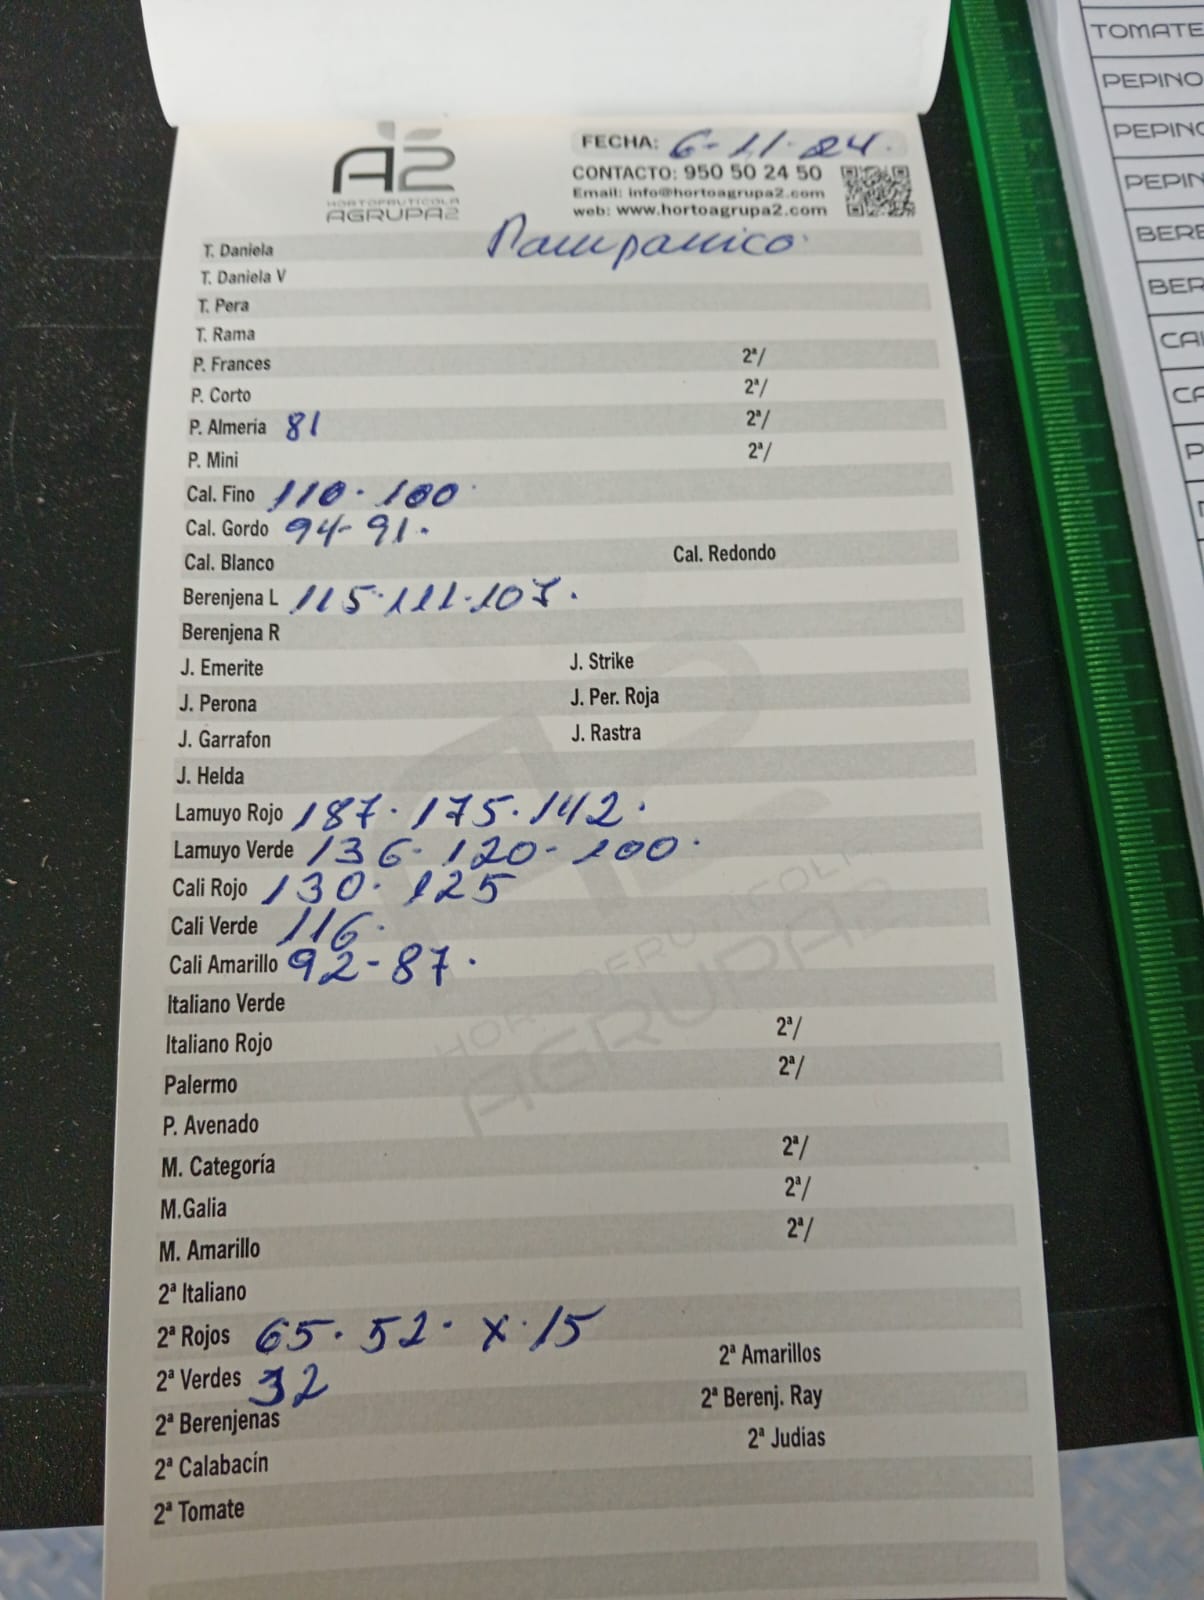 A2
HORTOFRUTICOLA
AGRUPA2
FECHA: 6-11-24.
CONTACTO: 950 50 24 50
Email: info@hortoagrupa2.com
web: www.hortoagrupa2.com
Pampanico.
T. Daniela
T. Daniela V
T. Pera
T. Rama
P. Frances 2ª/
P. Corto 2ª/
P. Almería 81 2ª/
P. Mini 2ª/
Cal. Fino 110. 100.
Cal. Gordo 94- 91.
Cal. Blanco Cal. Redondo
Berenjena L 115.111.107.
Berenjena R
J. Emerite J. Strike
J. Perona J. Per. Roja
J. Garrafon J. Rastra
J. Helda
Lamuyo Rojo 187. 175. 142.
Lamuyo Verde 136- 120- 100.
Cali Rojo 130. 125
Cali Verde 116.
Cali Amarillo 92-87.
Italiano Verde
Italiano Rojo 2ª/
Palermo 2ª/
P. Avenado
M. Categoría 2ª/
M.Galia 2ª/
M. Amarillo 2ª/
2ª Italiano
2ª Rojos 65. 52. x. 15
2ª Verdes 32 2ª Amarillos
2ª Berenjenas 2ª Berenj. Ray
2ª Calabacín 2ª Judias
2ª Tomate
HORTOFRUTICOLA
AGRUPA2
TOMATE
PEPINO